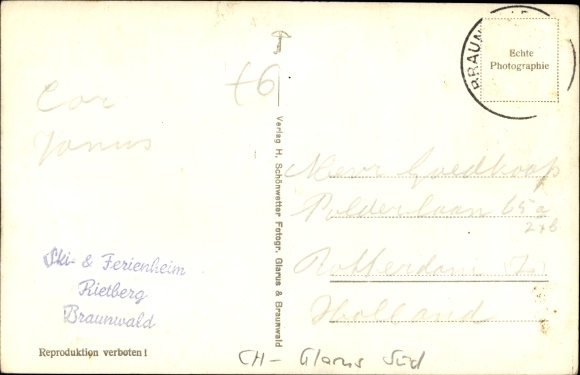 Cor
Janus
Ski- & Ferienheim
Rietberg
Braunwald
Reproduktion verboten!
+6
Verlag H. Schönwetter Fotogr. Glarus & Braunwald
BRAUN
Echte
Photographie
Mevr Goedkoop
Polderlaan 65a
2x6
Rotterdam (Z.)
Holland
CH- Glarus Süd